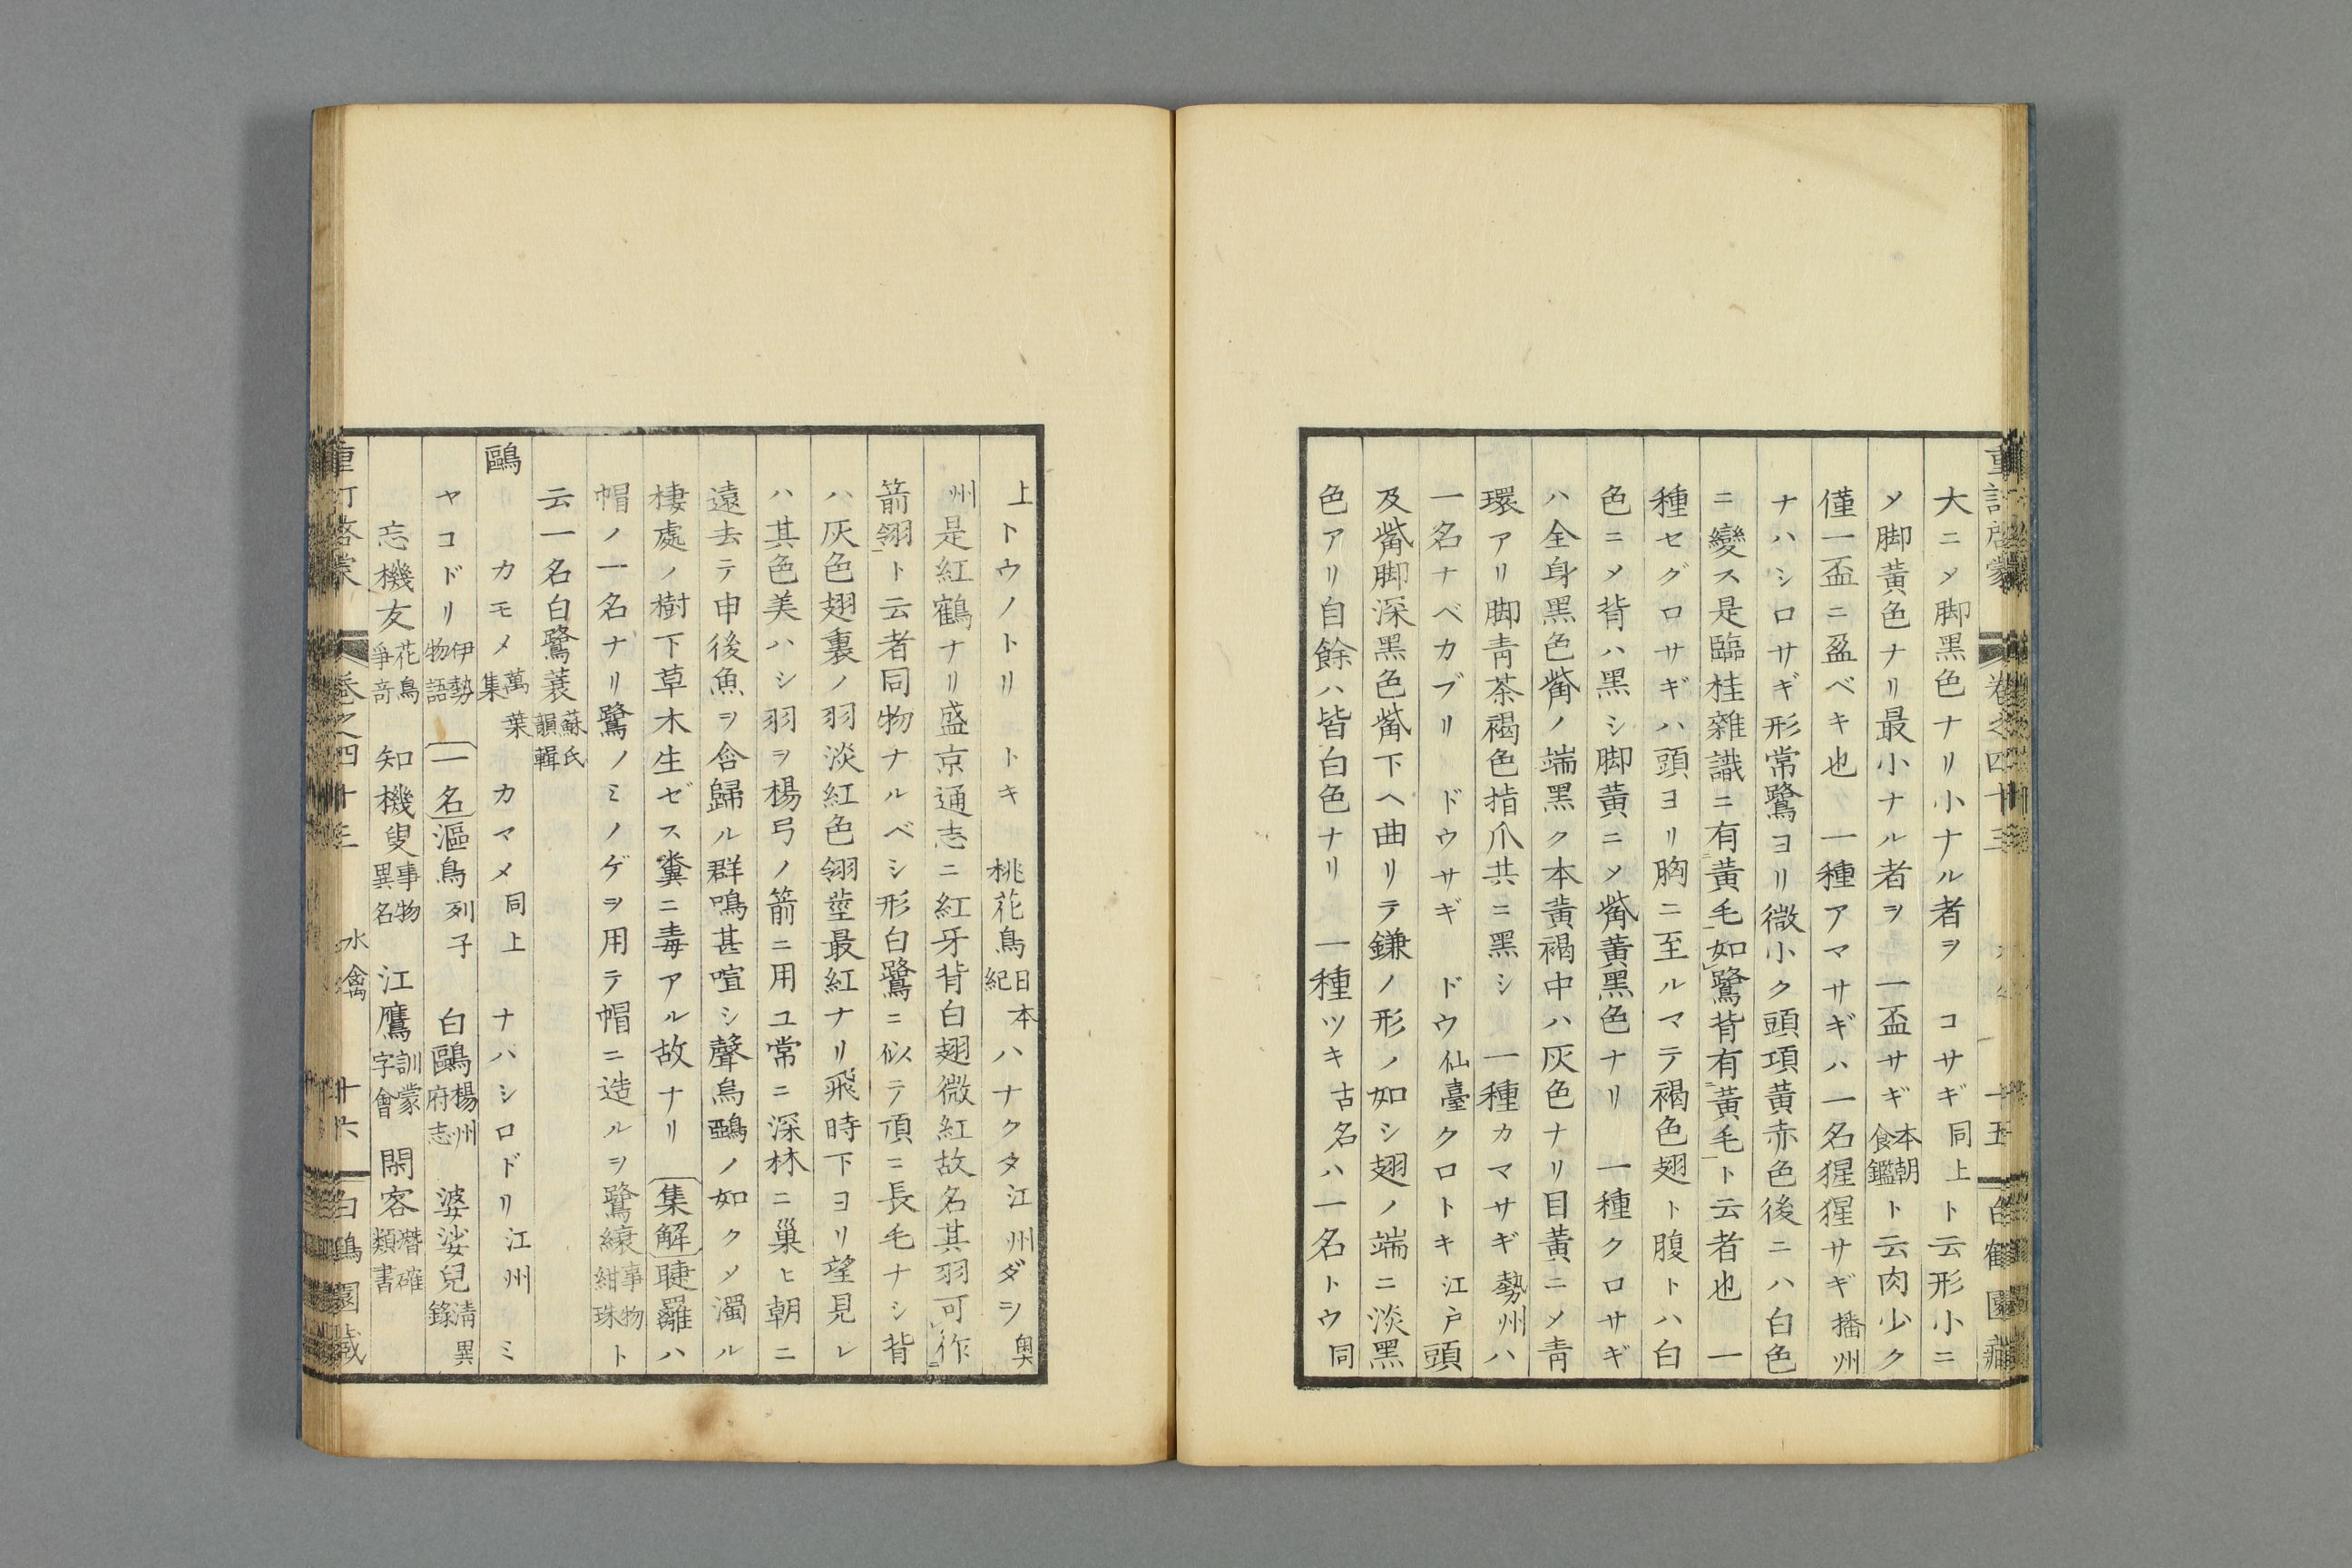 重訂啓蒙 卷之四十三 十五 白鶴園藏
大ニ〆脚黑色ナリ小ナル者ヲ コサギ同上ト云形小ニ
〆脚黃色ナリ最小ナル者ヲ 一盃サギ本朝食鑑ト云肉少ク
僅一盃ニ盈ベキ也 一種アマサギハ一名猩猩サギ播州
ナハシロサギ形常鷺ヨリ微小ク頭項黃赤色後ニハ白色
ニ變ス是臨桂雜識ニ有黃毛如鷺背有黃毛ト云者也 一
種セグロサギハ頭ヨリ胸ニ至ルマテ褐色翅ト腹トハ白
色ニ〆背ハ黑シ脚黃ニ〆觜黃黑色ナリ 一種クロサギ
ハ全身黑色觜ノ端黑ク本黃褐中ハ灰色ナリ目黃ニ〆靑
環アリ脚靑茶褐色指爪共ニ黑シ 一種カマサギ勢州ハ
一名ナベカブリ ドウサギ ドウ仙臺クロトキ江戶頭
及觜脚深黑色觜下ヘ曲リテ鎌ノ形ノ如シ翅ノ端ニ淡黑
色アリ自餘ハ皆白色ナリ 一種ツキ古名ハ一名トウ同
上トウノトリ トキ 桃花鳥日本紀ハナクタ江州ダヲ奥
州是紅鶴ナリ盛京通志ニ紅牙背白翅微紅故名其羽可作
箭翎ト云者同物ナルベシ形白鷺ニ似テ頂ニ長毛ナシ背
ハ灰色翅裏ノ羽淡紅色翎莖最紅ナリ飛時下ヨリ望見レ
ハ其色美ハシ羽ヲ楊弓ノ箭ニ用ユ常ニ深林ニ巢ヒ朝ニ
遠去テ申後魚ヲ含歸ル群鳴甚喧シ聲烏鵶ノ如ク〆濁ル
棲處ノ樹下草木生ゼス糞ニ毒アル故ナリ 〔集解〕睫䍦ハ
帽ノ一名ナリ鷺ノミノゲヲ用テ帽ニ造ルヲ鷺縗事物紺珠ト
云一名白鷺蓑蘇氏韻輯
鷗 カモメ萬葉集 カマメ同上 ナハシロドリ江州 ミ
ヤコドリ伊勢物語 〔一名〕漚鳥列子 白鷗楊州府志 婆娑兒淸異錄
忘機友花鳥爭奇 知機叟事物異名 江鷹訓蒙字會 閑客潛確類書
重訂啓蒙 卷之四十三 水禽 十六 白鶴園藏